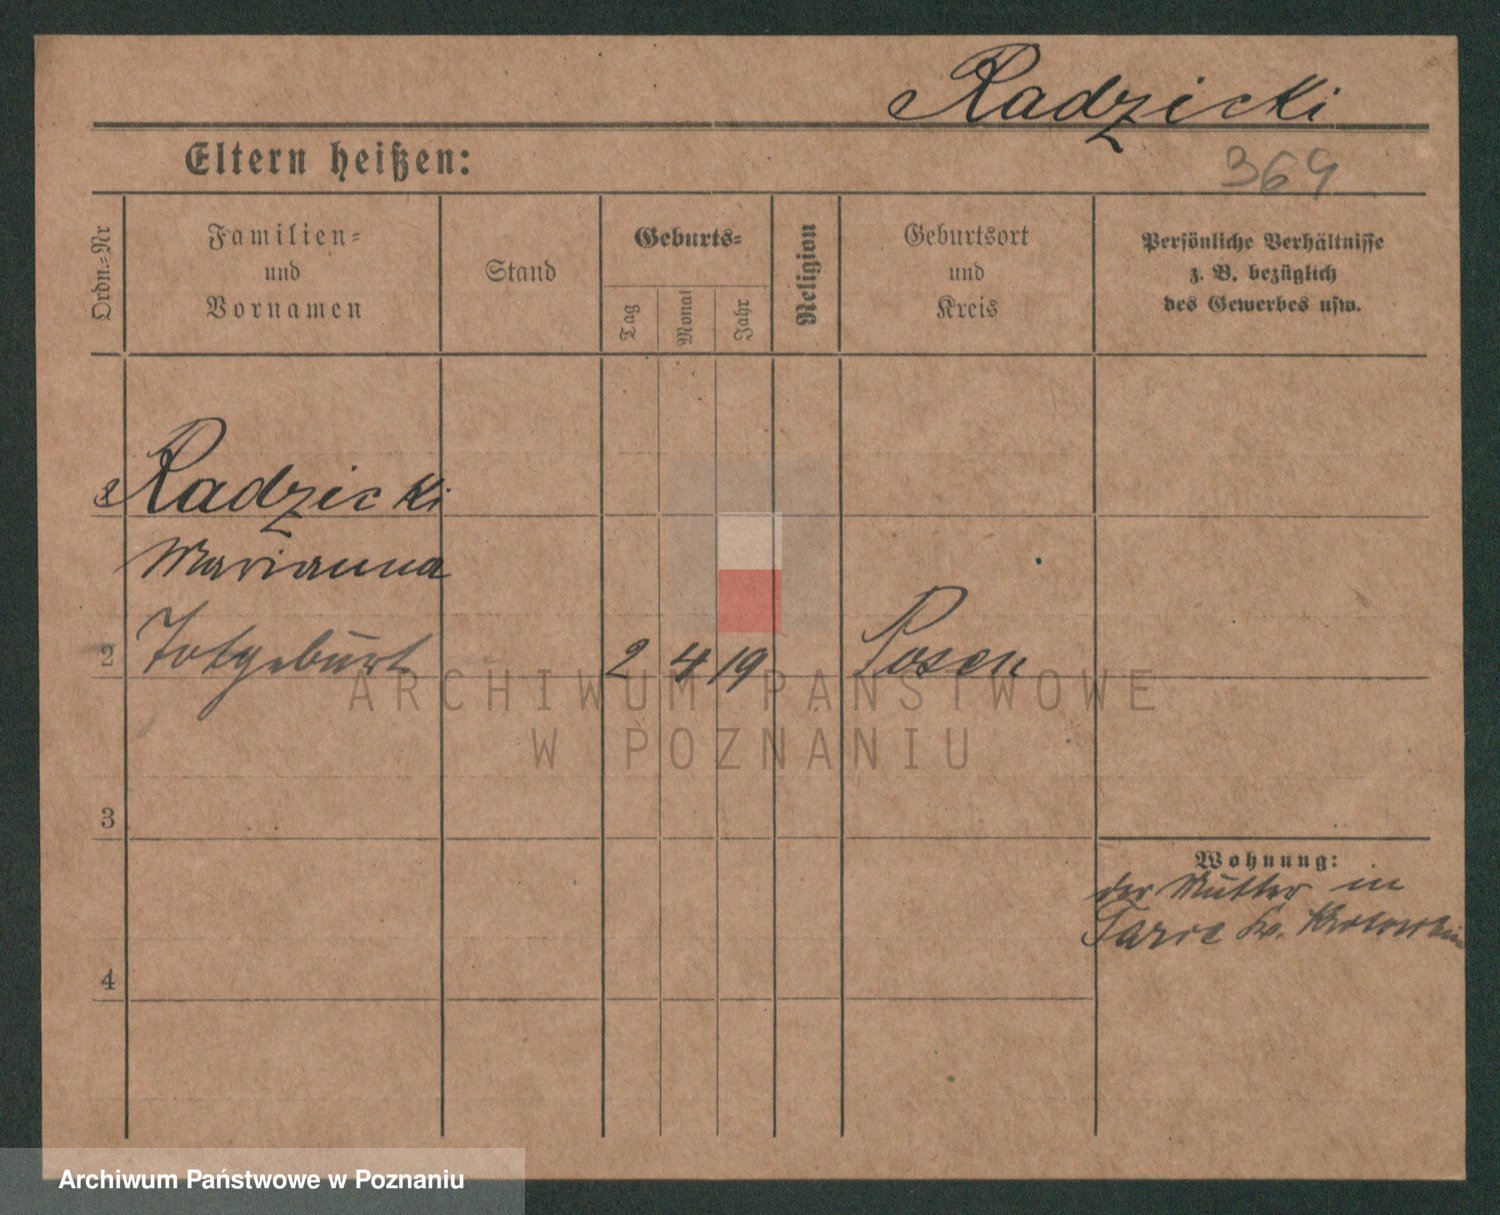 Radzicki
Eltern heißen:
369
Ordn.=Nr
Familien=
und
Vornamen
Stand
Geburts=
Tag
Monat
Jahr
Religion
Geburtsort
und
Kreis
Persönliche Verhältnisse
z. B. bezüglich
des Gewerbes usw.
Radzicki
Marianna
2 Totgeburt 2 4 19 Posen
ARCHIWUM PAŃSTWOWE
W POZNANIU
3
Wohnung:
der Mutter in
Tarce
4
Archiwum Państwowe w Poznaniu